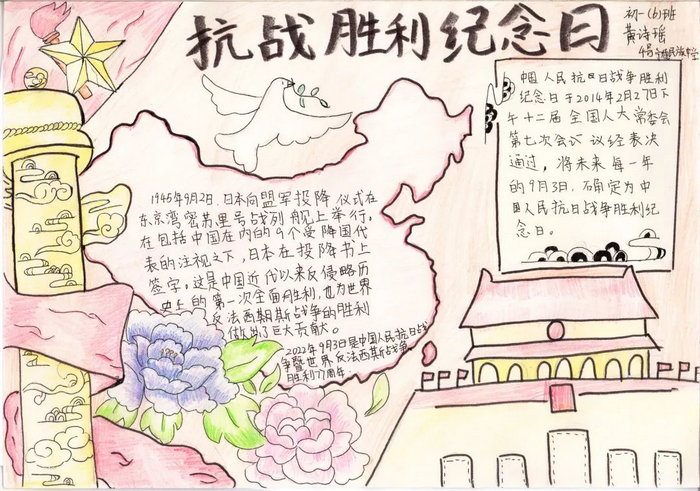 抗战胜利纪念日
初一(6)班
黄诗瑶
中国人民抗日战争胜利
纪念日于2014年2月27日下
午十二届全国人大常委会
第七次会议议经表决
通过，将未来每一年
的9月3日，确定为中
国人民抗日战争胜利纪
念日。
1945年9月2日，日本向盟军投降仪式在
东京湾密苏里号战列舰上举行。
在包括中国在内的9个受降国代
表的注视之下，日本在投降书上
签字。这是中国近代以来反侵略历
史上的第一次全面胜利，也为世界
反法西斯斯战争的胜利
做出了巨大贡献。
2022年9月3日是中国人民抗日战
争暨世界反法西斯战争
胜利77周年